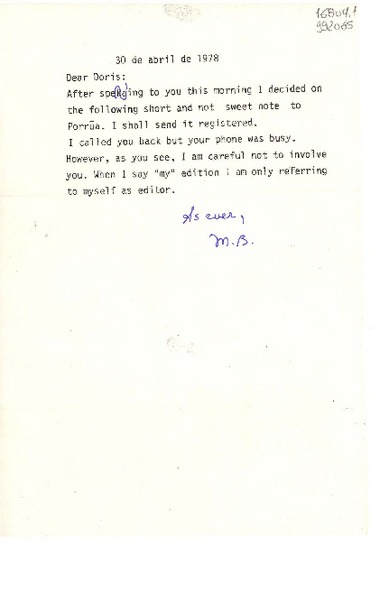 30 de abril de 1978
Dear Doris:
After speaking to you this morning I decided on
the following short and not sweet note to
Porrūa. I shall send it registered.
I called you back but your phone was busy.
However, as you see, I am careful not to involve
you. When I say "my" edition i am only referring
to myself as editor.
As ever,
M.B.